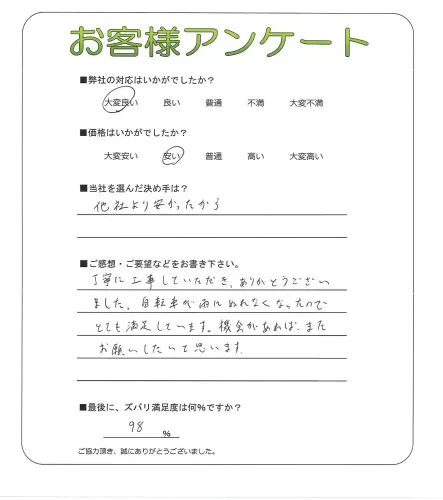 お客様アンケート
■弊社の対応はいかがでしたか?
大変良い 良い 普通 不満 大変不満
■価格はいかがでしたか?
大変安い 安い 普通 高い 大変高い
■当社を選んだ決め手は?
他社より安かったから
■ご感想・ご要望などをお書き下さい。
丁寧に工事していただき、ありがとうござい
ました。自転車が雨にぬれなくなったので
とても満足しています。機会があれば、また
お願いしたいて思います。
■最後に、ズバリ満足度は何%ですか?
98 %
ご協力頂き、誠にありがとうございました。